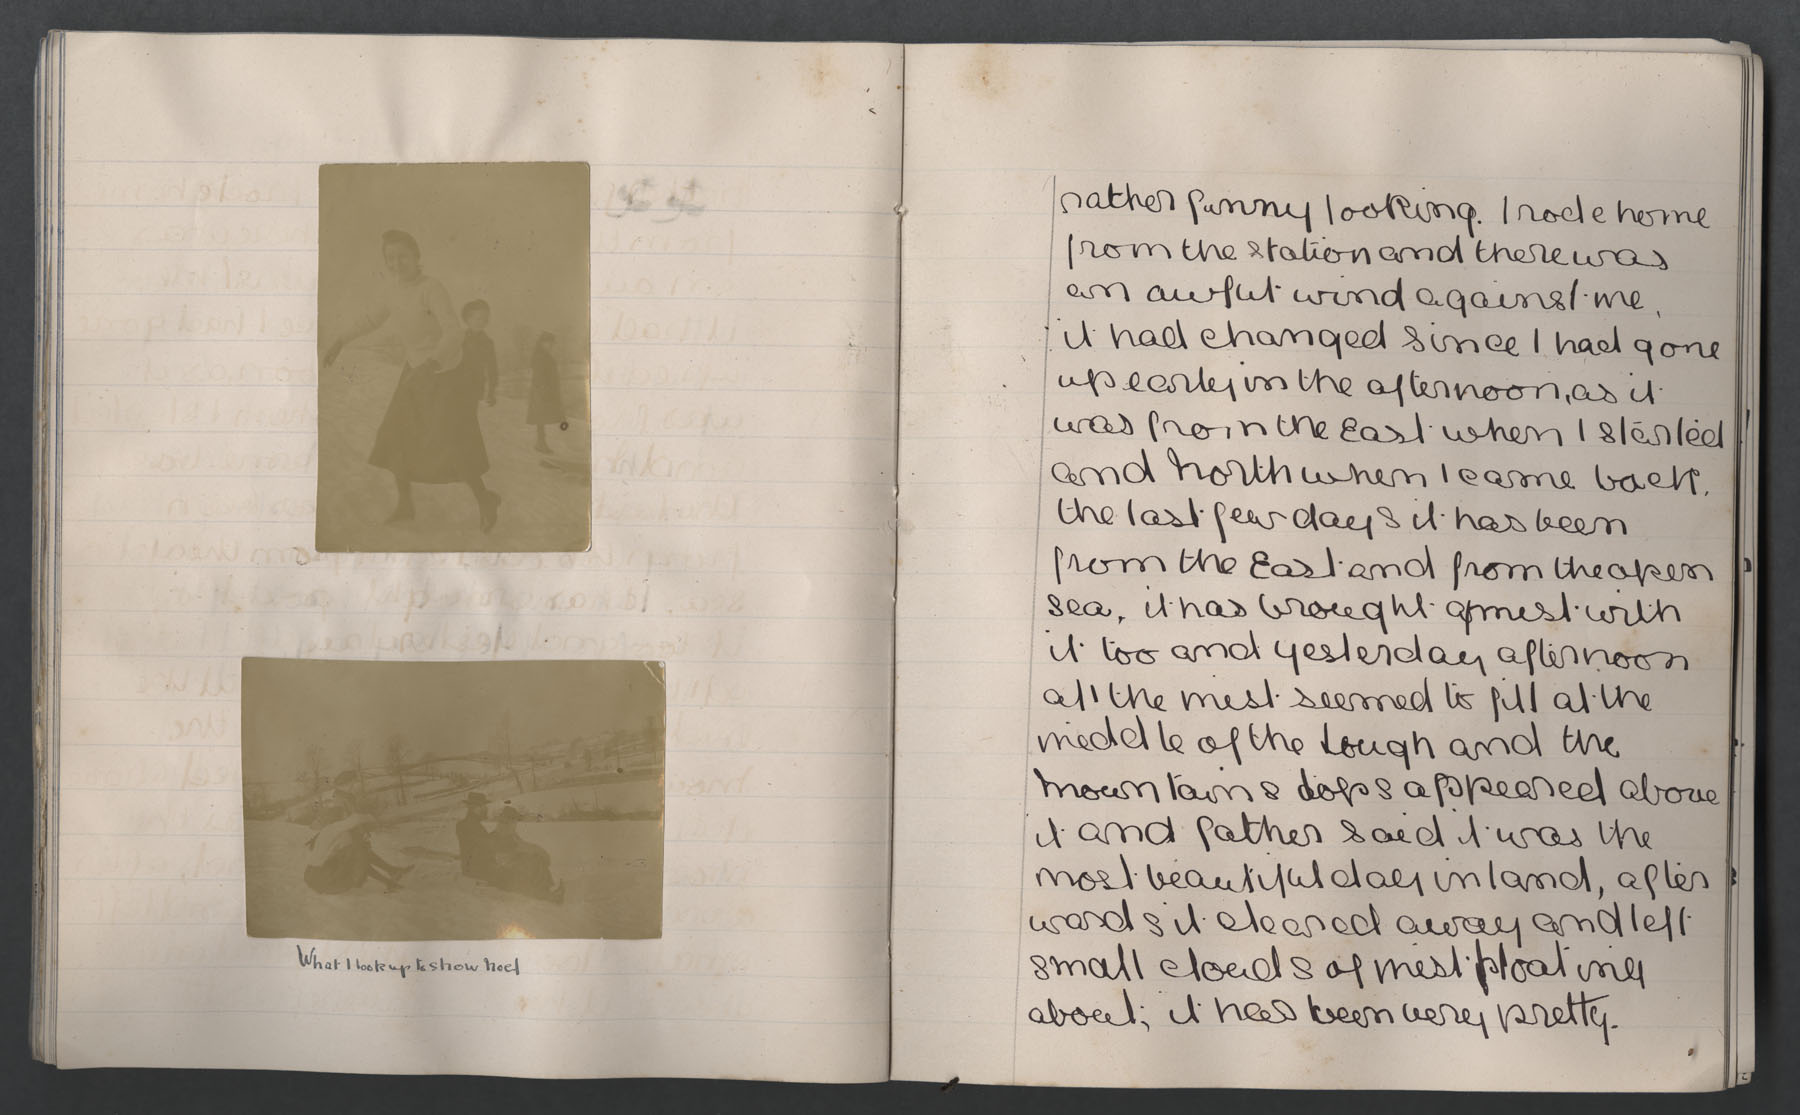 What I took up to show Noel
rather funny looking. I rode home
from the station and there was
an awful wind against me,
it had changed since I had gone
up early in the afternoon, as it
was from the East when I started
and North when I came back.
the last few days it has been
from the East and from the open
sea, it has brought a mist with
it too and yesterday afternoon
all the mist seemed to fill at the
middle of the Lough and the
mountains tops appeared above
it and father said it was the
most beautiful day in land, after
wards it cleared away and left
small clouds of mist floating
about; it has been very pretty.